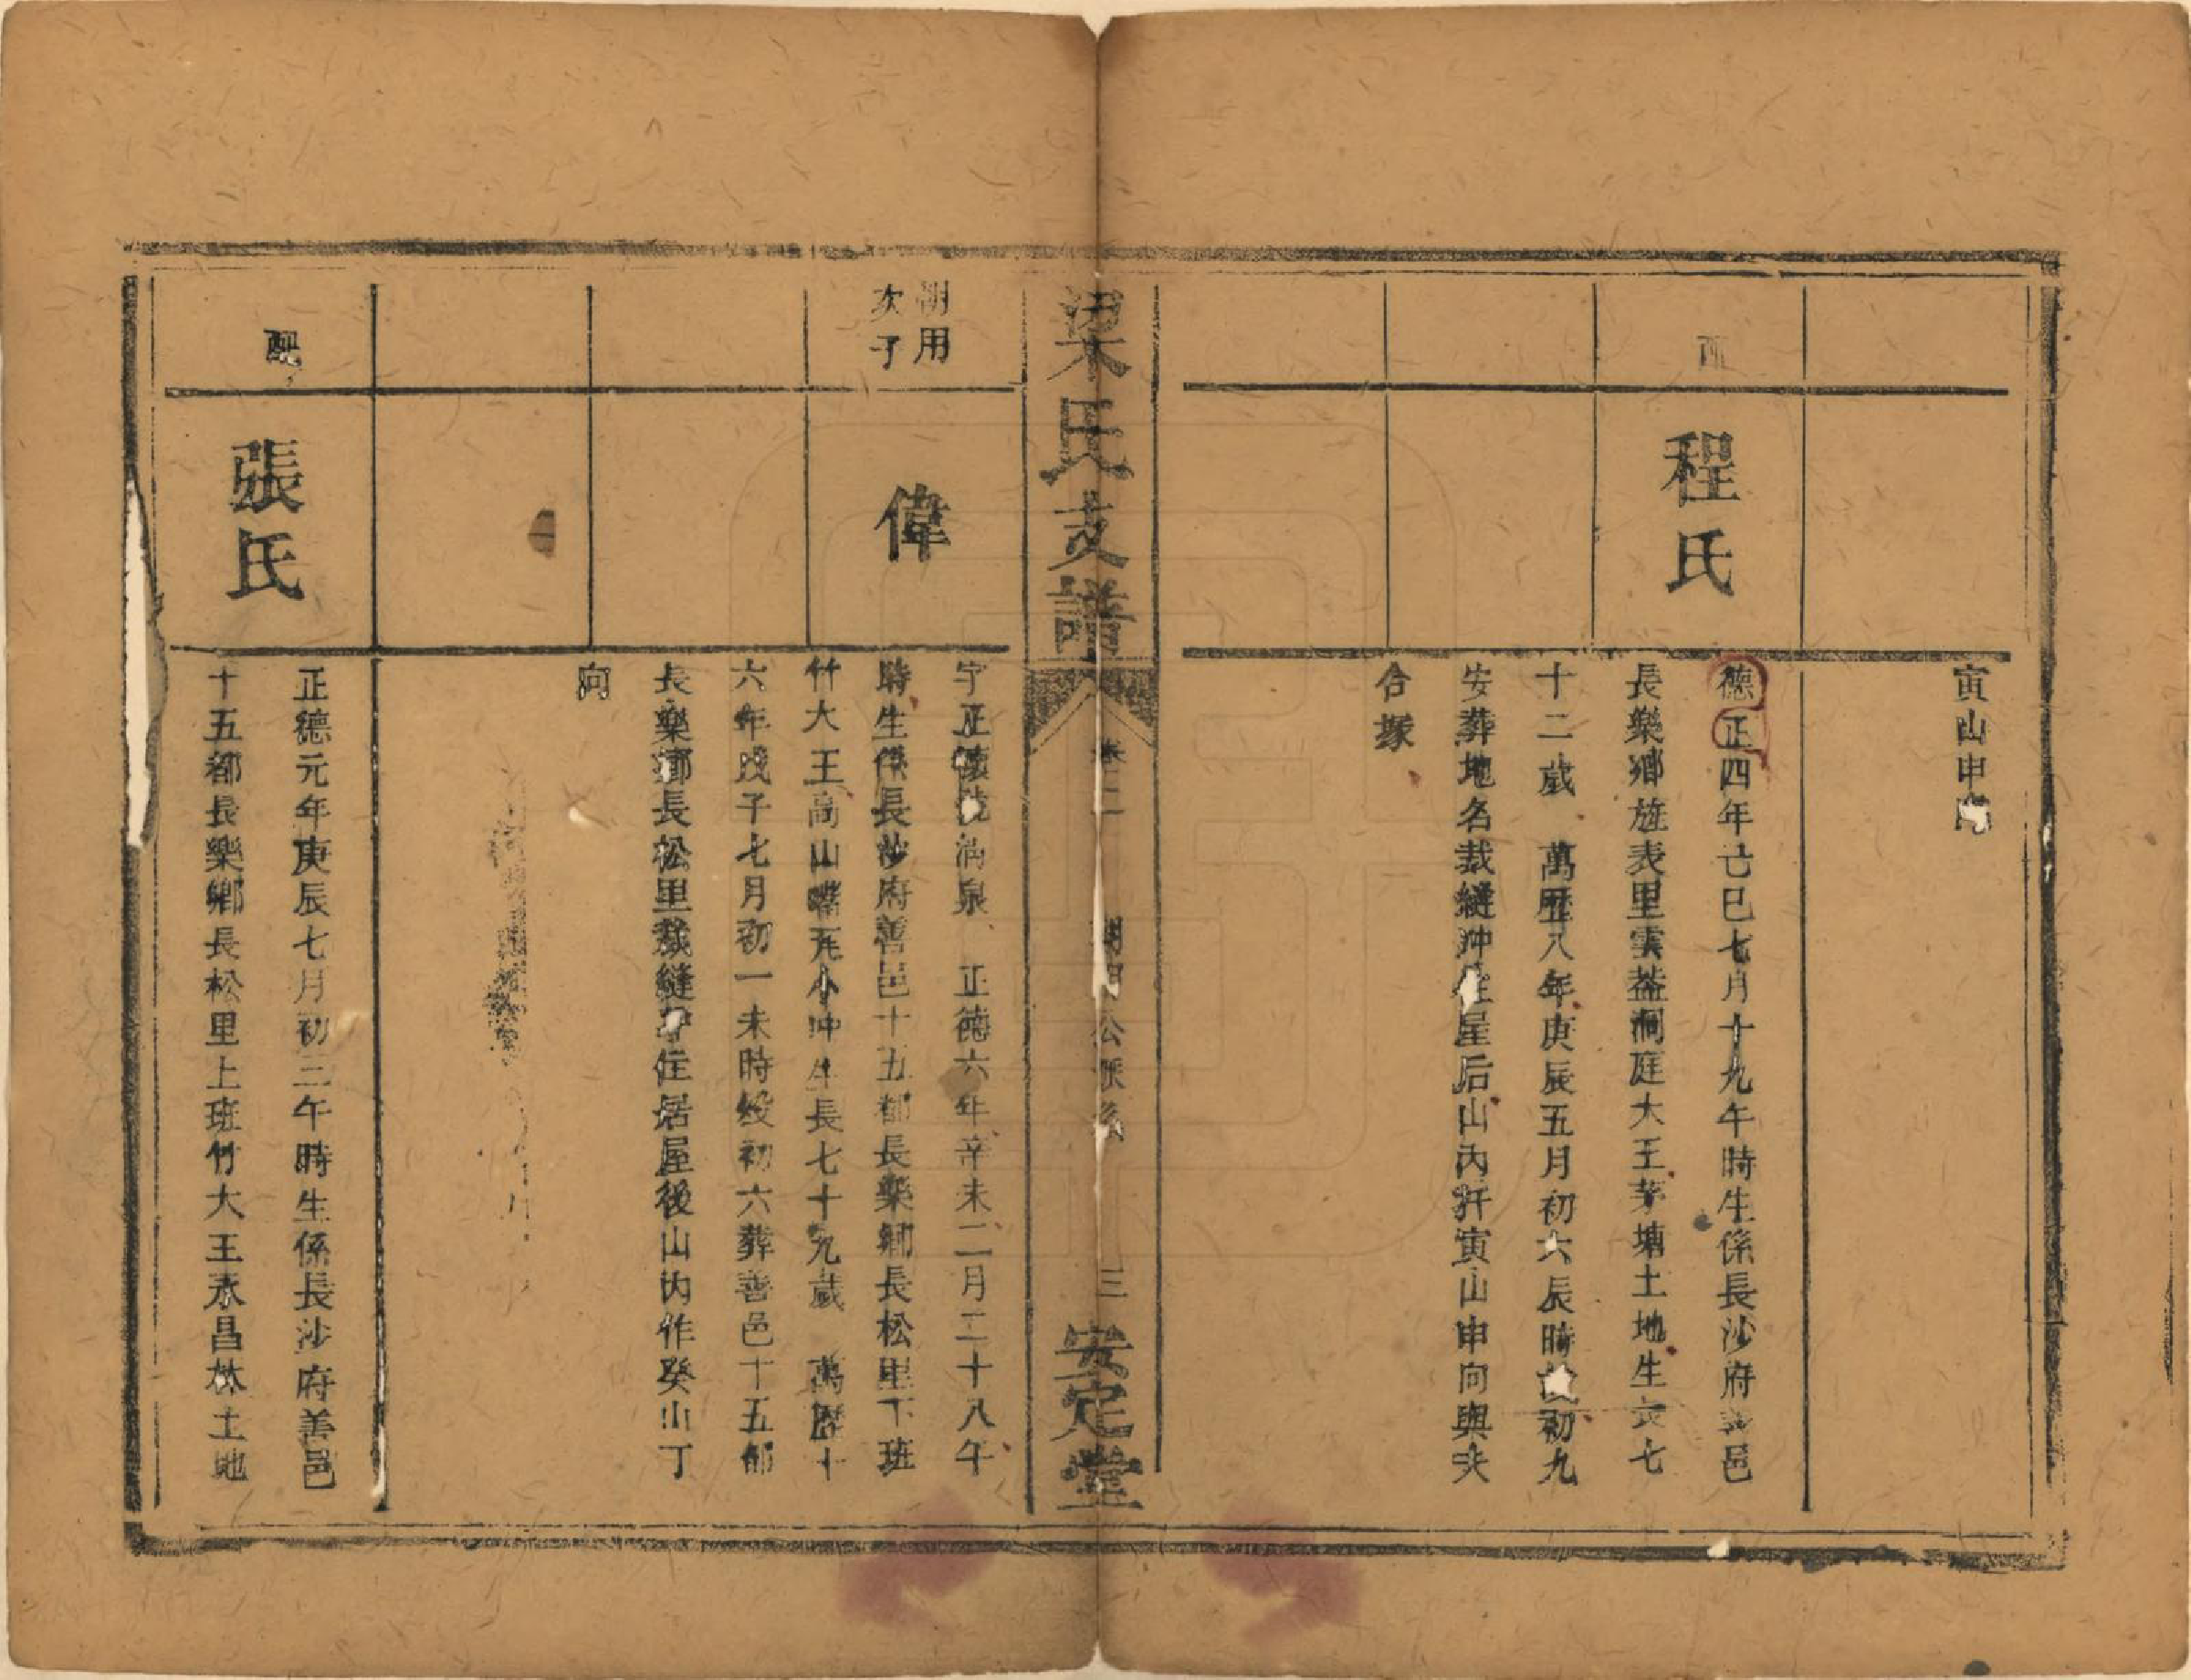 寅山申向
配
程氏
德正四年己巳七月十九午時生係長沙府善邑
長樂鄉旌表里雲蓋洞庭大王茅塘土地生六七
十二歲 萬歷八年庚辰五月初六辰時沒初九
安葬地名裁縫冲住屋后山內扞寅山申向與夫
合塚
梁氏支譜
卷二
朝用公派系
三
安定堂
朝用
次子
偉
字正德號湧泉 正德六年辛未二月二十八午
時生係長沙府善邑十五都長樂鄉長松里下班
竹大王高山嘴尾小冲生長七十九歲 萬歷十
六年戊子七月初一未時歿初六葬善邑十五都
長樂鄉長松里裁縫冲住居屋後山內作癸山丁
向
配
張氏
正德元年庚辰七月初三午時生係長沙府善邑
十五都長樂鄉長松里上班竹大王永昌林土地